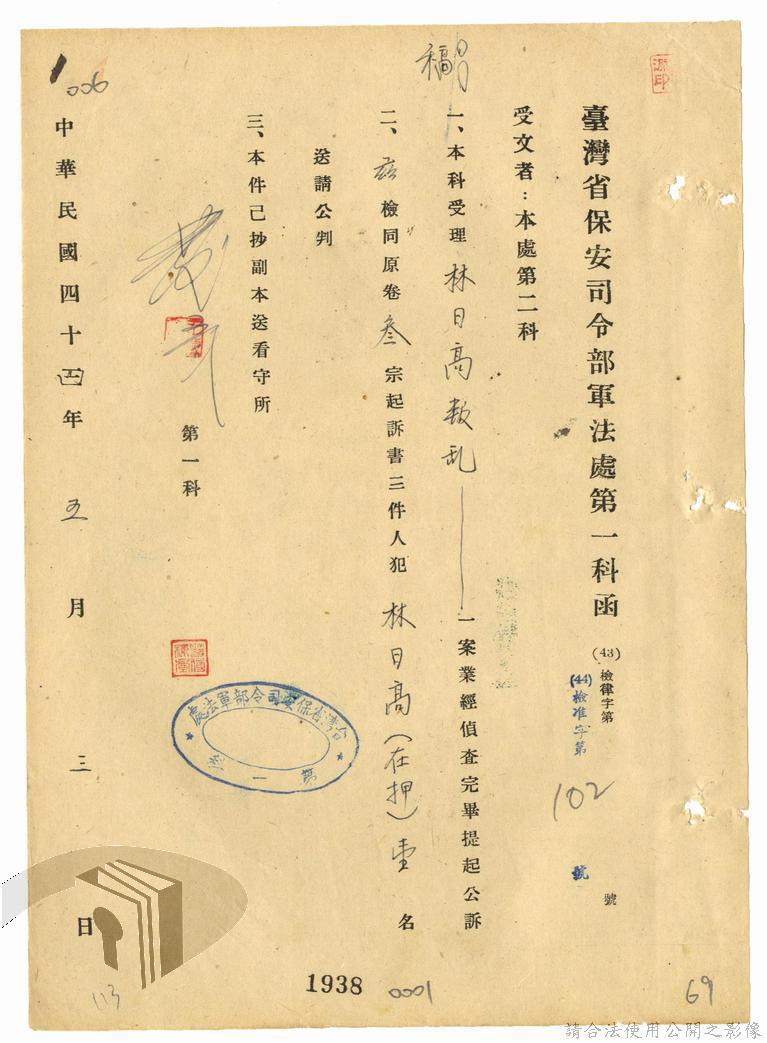 臺灣省保安司令部軍法處第一科函
(43)檢律字第 號
(44)檢准字第 102 號
受文者:本處第二科
稿
一、本科受理林日高叛乱一案業經偵查完畢提起公訴
二、茲檢同原卷叁宗起訴書三件人犯林日高(在押)壹名
送請公判
三、本件已抄副本送看守所
第一科
台灣省保安司令部軍法處
第一
中華民國四十四年五月三日
006
113
1938
0001
69
請合法使用公開之影像